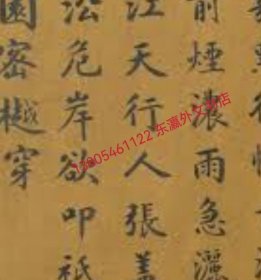 前煙濃雨急灑
江天行人張蓋
危岸欲叩祇
園密樾穿
13805461122 东瀛外文书店